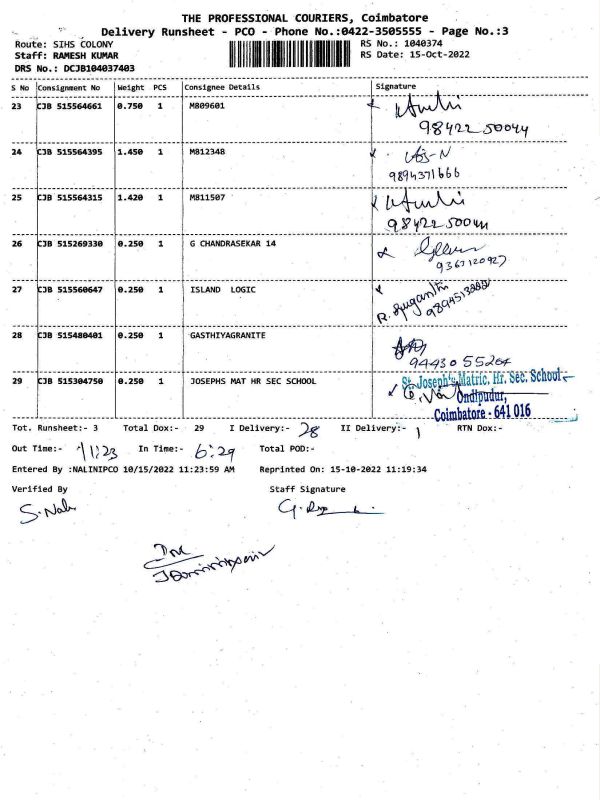 THE PROFESSIONAL COURIERS, Coimbatore
Delivery Runsheet - PCO - Phone No.:0422-3505555 - Page No.:3
Route: SIHS COLONY
RS No.: 1040374
Staff: RAMESH KUMAR
RS Date: 15-Oct-2022
DRS No.: DCJB104037403
S No Consignment No Weight PCS Consignee Details Signature
23 CJB 515564661 0.750 1 M809601
98422 50044
24 CJB 515564395 1.450 1 M812348
9894371666
25 CJB 515564315 1.420 1 M811507
98422 50044
26 CJB 515269330 0.250 1 G CHANDRASEKAR 14
9363120927
27 CJB 515560647 0.250 1 ISLAND LOGIC
R. Suganthi
28 CJB 515480401 0.250 1 GASTHIYAGRANITE
94430 55264
29 CJB 515304750 0.250 1 JOSEPHS MAT HR SEC SCHOOL
St. Joseph's Matric. Hr. Sec. School
Ondipudur,
Coimbatore - 641 016
Tot. Runsheet:- 3 Total Dox:- 29 I Delivery:- 28 II Delivery:- 1 RTN Dox:-
Out Time:- 11:23 In Time:- 6:29 Total POD:-
Entered By :NALINIPCO 10/15/2022 11:23:59 AM Reprinted On: 15-10-2022 11:19:34
Verified By Staff Signature